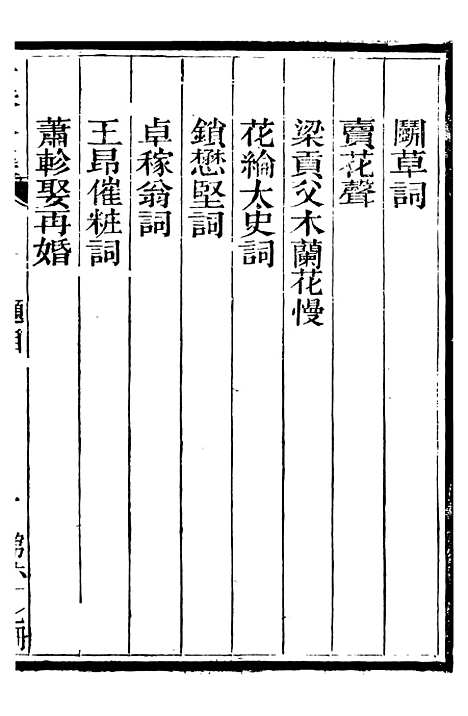 鬬草詞
賣花聲
梁貢父木蘭花慢
花綸太史詞
鎖懋堅詞
卓稼翁詞
王昂催粧詞
蕭軫娶再婚